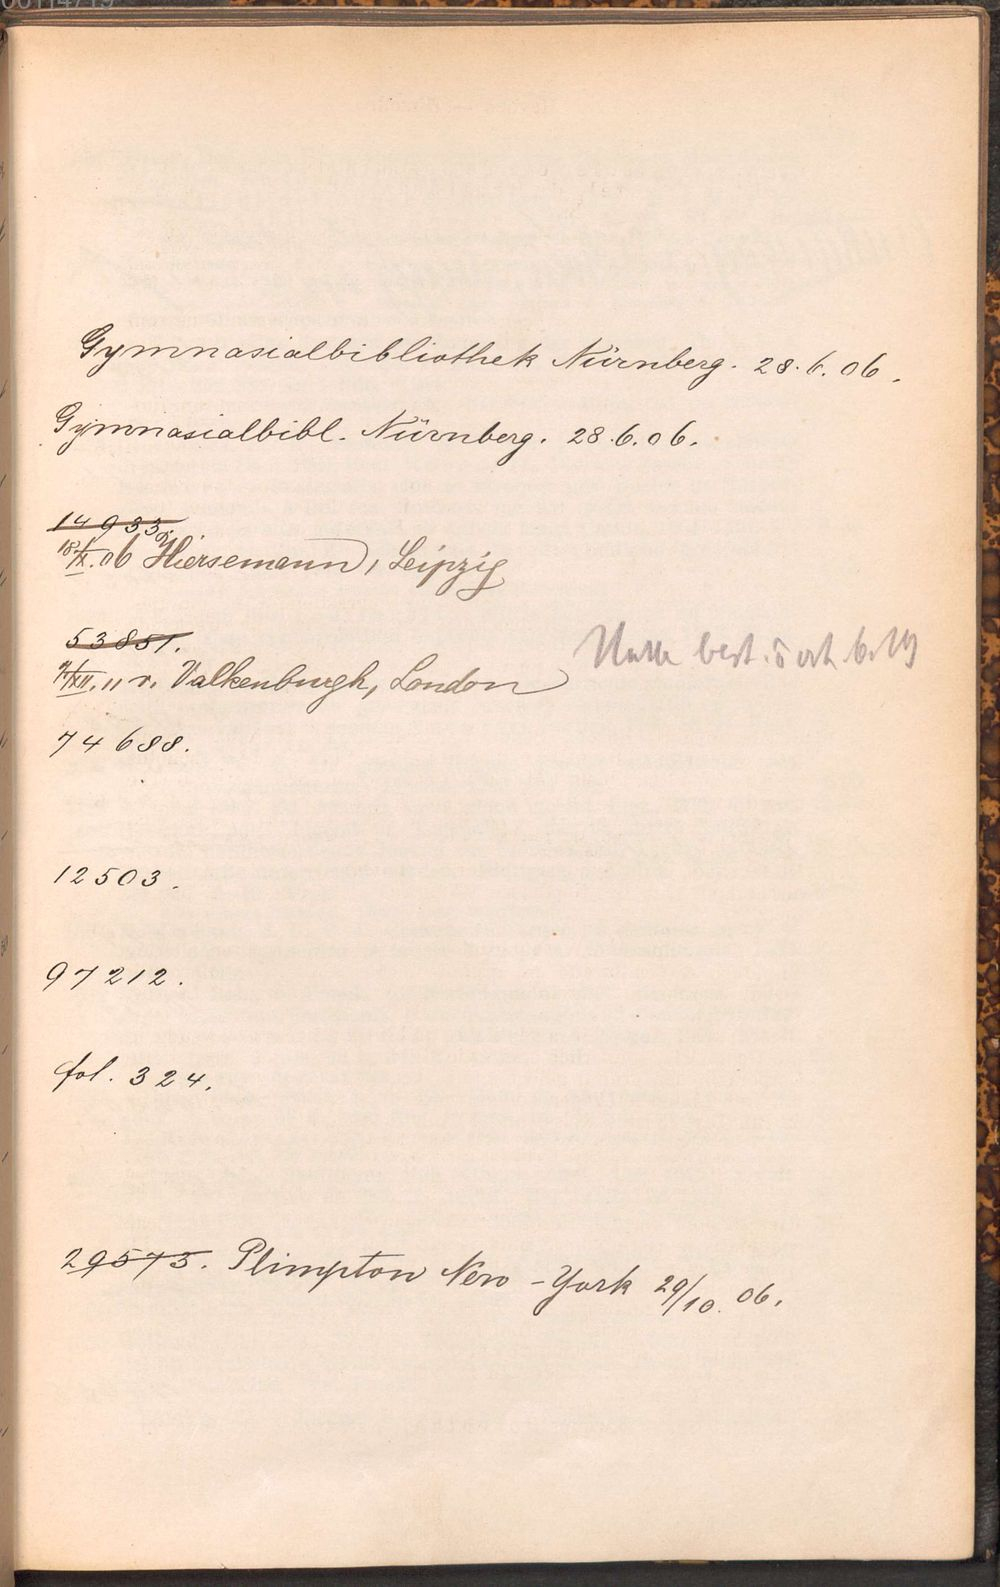 00114715
Gymnasialbibliothek Nürnberg. 28.6.06.
Gymnasialbibl. Nürnberg. 28.6.06.
14933
18/IX.06 Hiersemann, Leipzig
53851.
/XII.11 v. Valkenburgh, London
74688.
12503.
97212.
fol. 324.
29573. Plimpton New-York 29/10. 06.